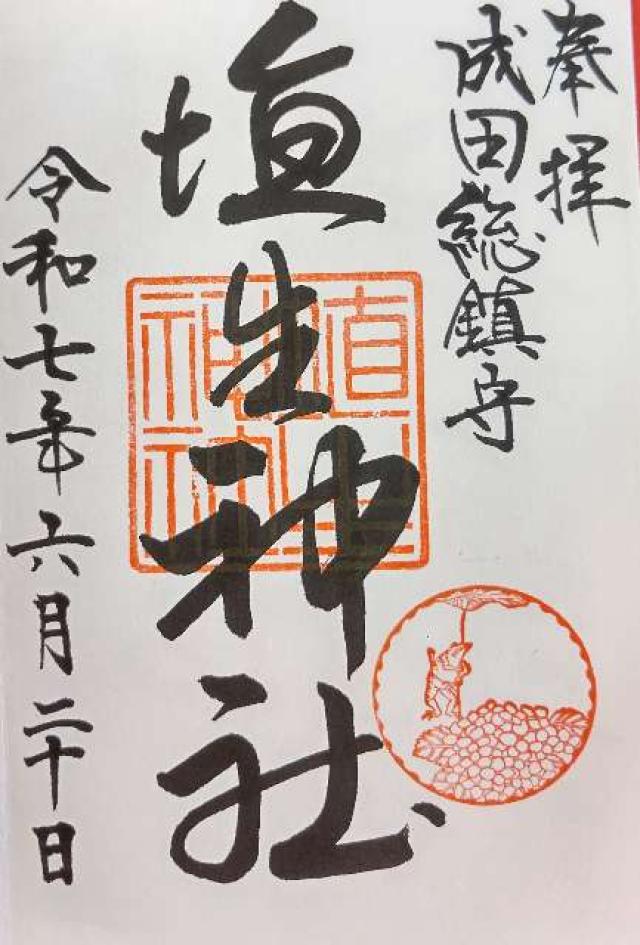 奉拝
成田総鎮守
埴生神社
令和七年六月二十日